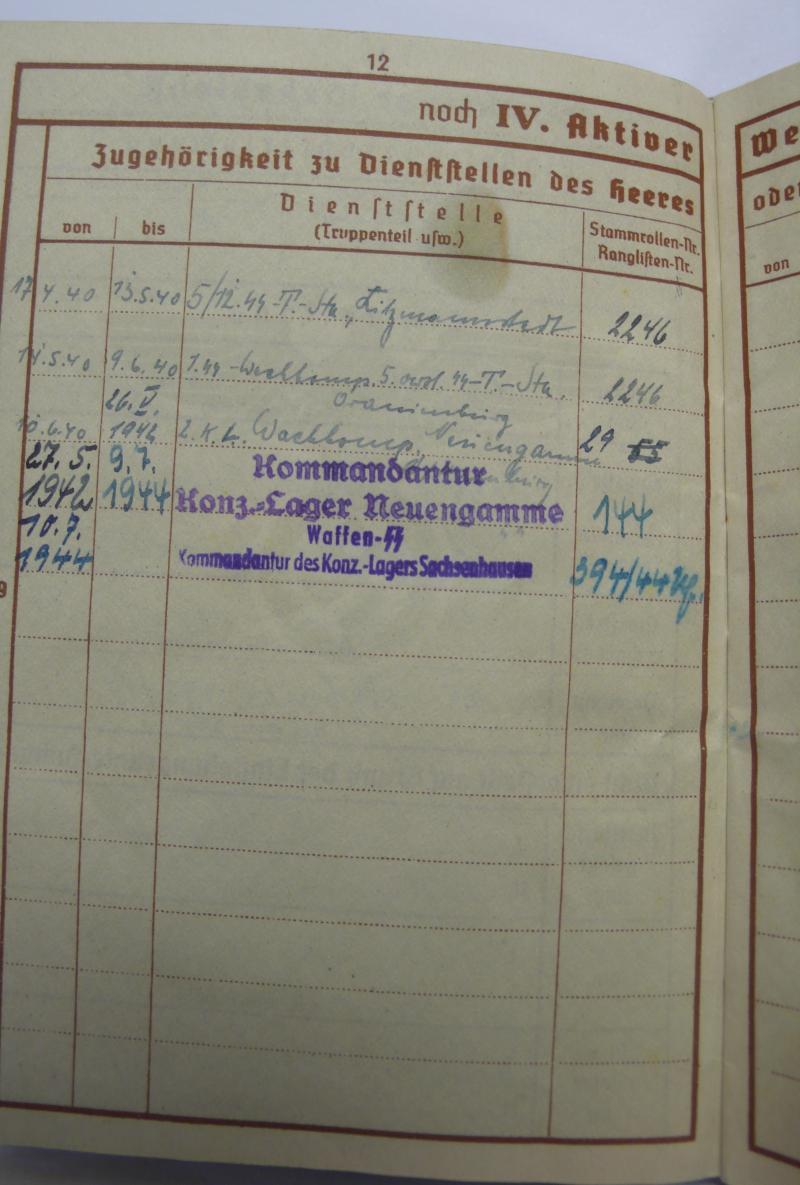 12
noch IV. Aktiver
Zugehörigkeit zu Dienststellen des Heeres
von bis Dienststelle (Truppenteil usw.) Stammrollen-Nr. Ranglisten-Nr.
17 4.40 13.5.40 5/12.44-T.-Sta. "Litzmannstadt 2246
14.5.40 9.6.40 1.44-Wachkomp. 5. 44-T.-Sta. 2246
Oranienburg
10.6.40 26.V. 1942 2. K.L. Wachkomp. Neuengamme 29 55
27.5. 1942 9.7. 1944 Kommandantur
Konz.-Lager Neuengamme 144
10.7. 1944 Waffen-SS
Kommandantur des Konz.-Lagers Sachsenhausen 394/44
We
oder
von
9